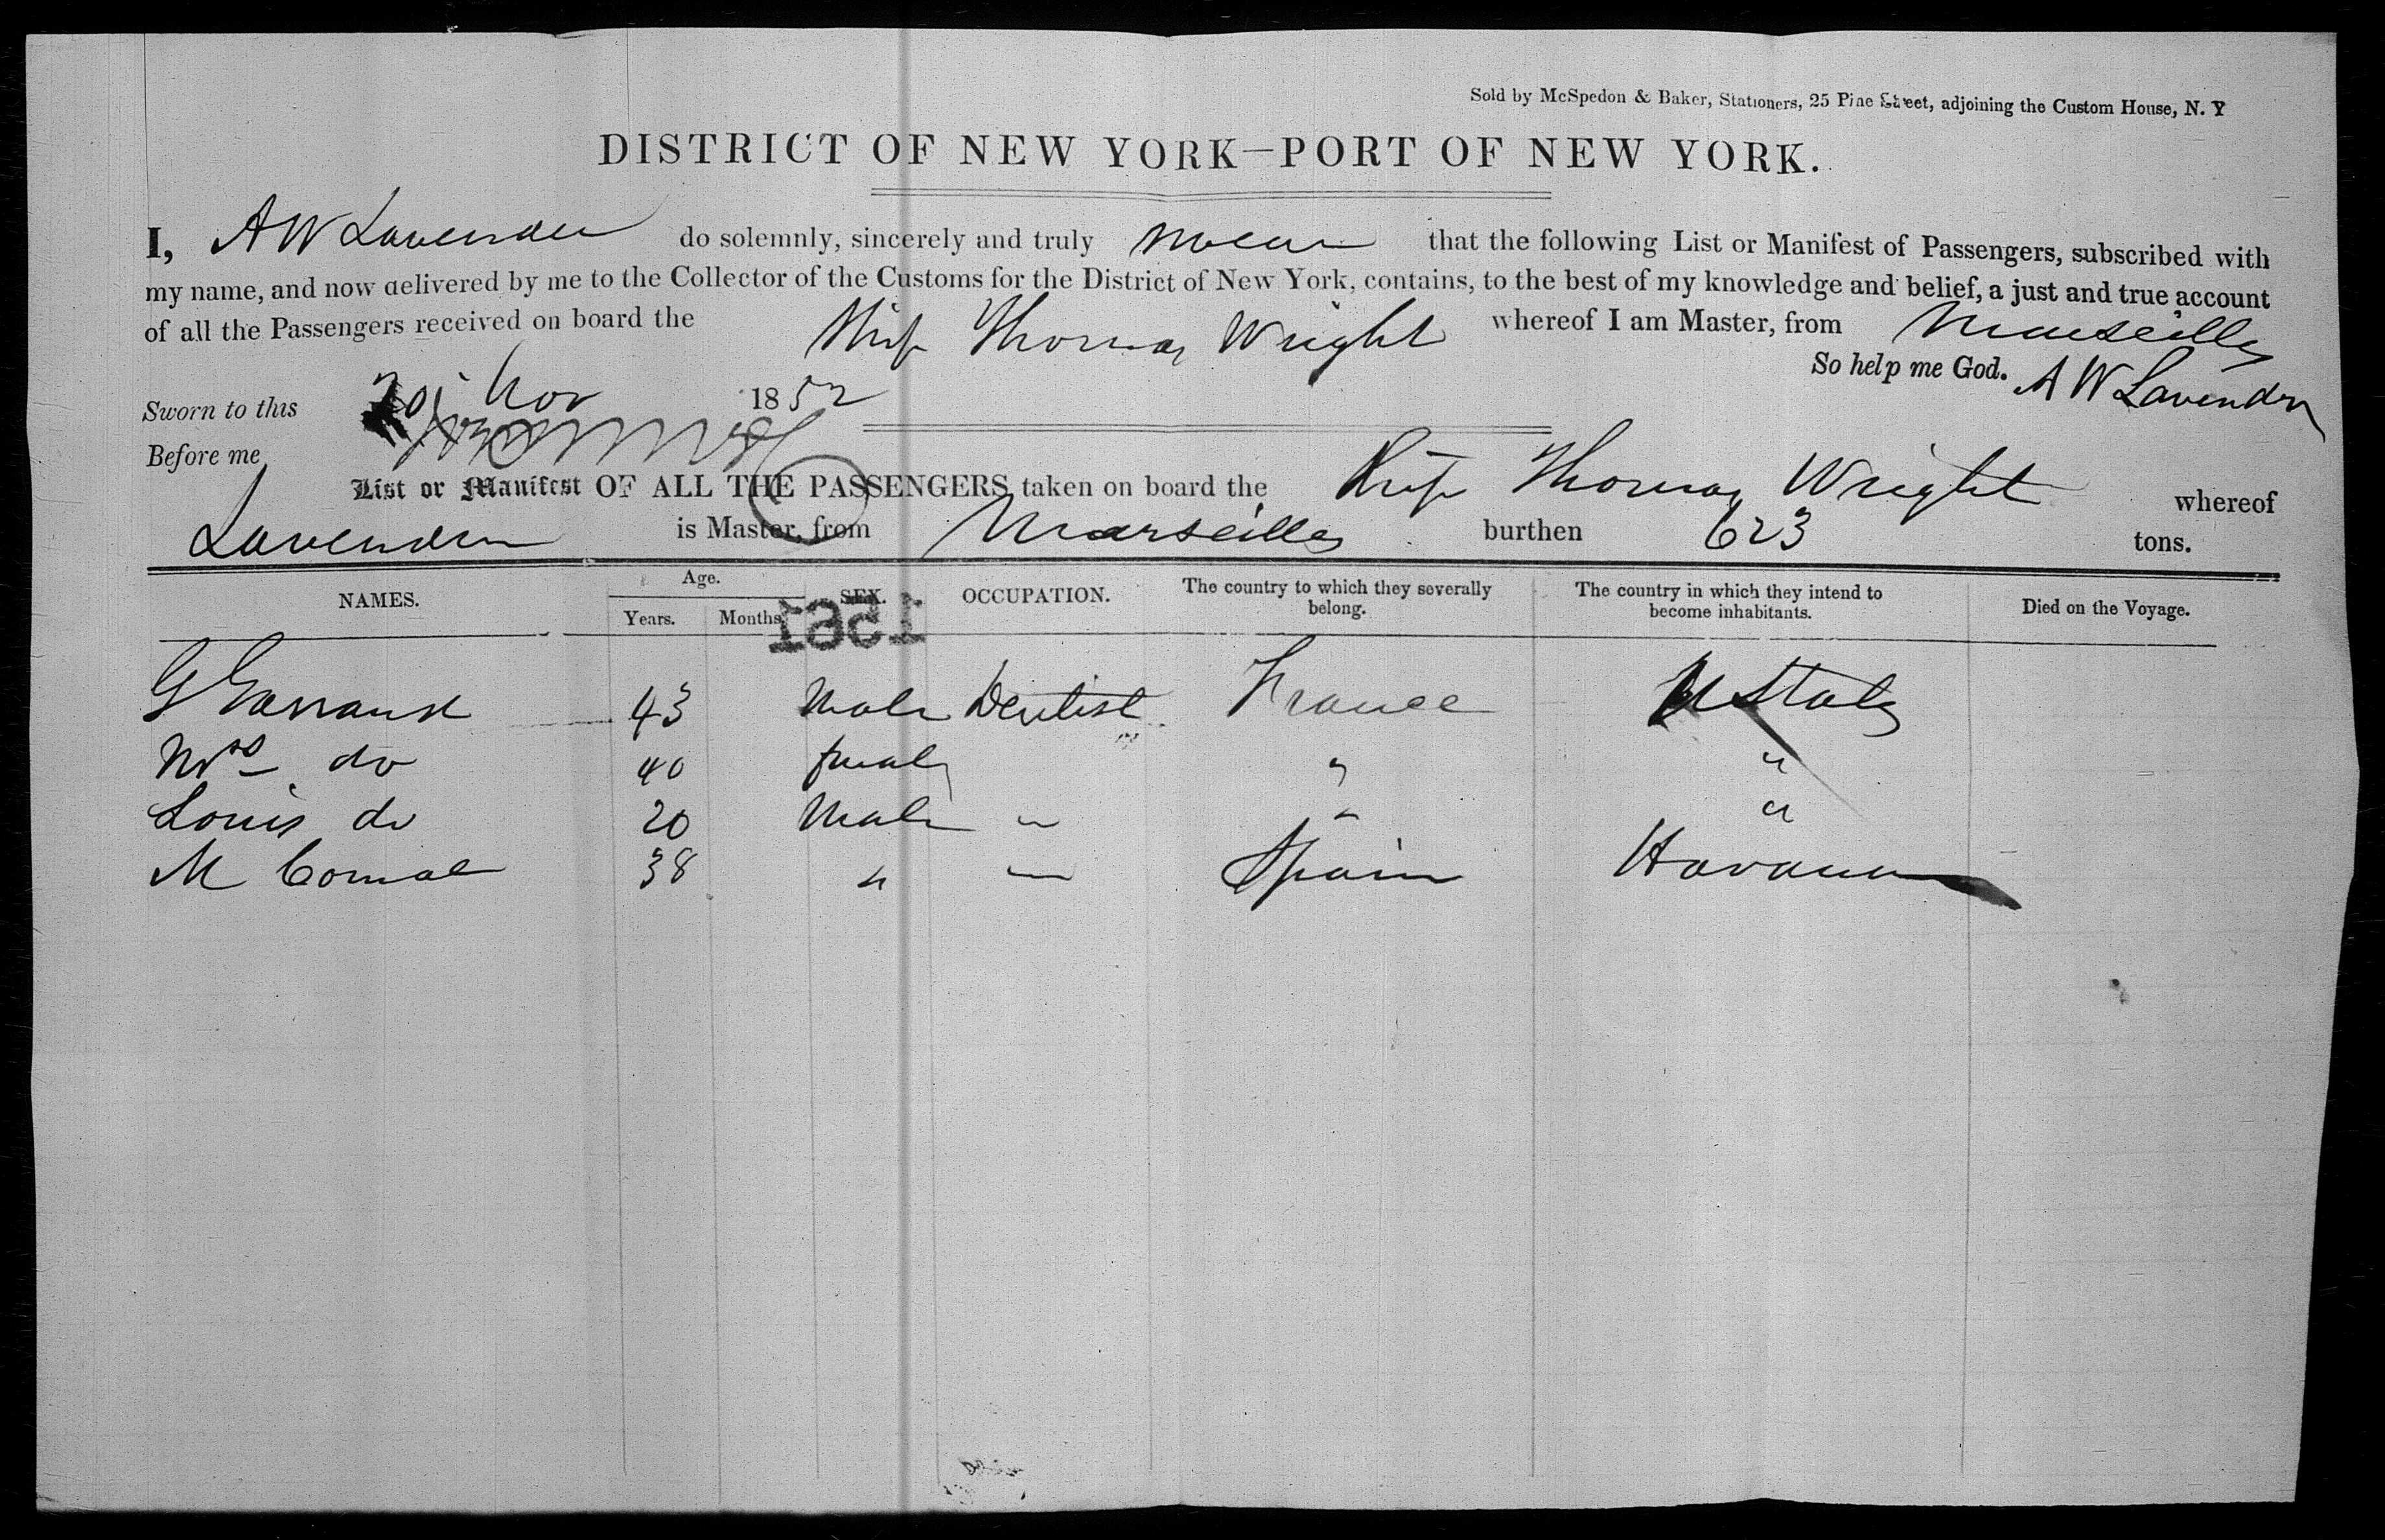 Sold by McSpedon & Baker, Stationers, 25 Pine Street, adjoining the Custom House, N. Y
DISTRICT OF NEW YORK—PORT OF NEW YORK.
I, A W Lavender do solemnly, sincerely and truly swear that the following List or Manifest of Passengers, subscribed with
my name, and now delivered by me to the Collector of the Customs for the District of New York, contains, to the best of my knowledge and belief, a just and true account
of all the Passengers received on board the Ship Thomas Wright whereof I am Master, from Marseilles
So help me God. A W Lavender
Sworn to this 20 Nov 1852
Before me
List or Manifest OF ALL THE PASSENGERS taken on board the Ship Thomas Wright whereof
Lavender is Master, from Marseilles burthen 623 tons.
NAMES. Age. Years. Months SEX. OCCUPATION. The country to which they severally belong. The country in which they intend to become inhabitants. Died on the Voyage.
1561
G 43 Male Dentist France U States
Mrs do 40 female " "
Louis do 20 Male " " "
M 38 " " Spain Havana